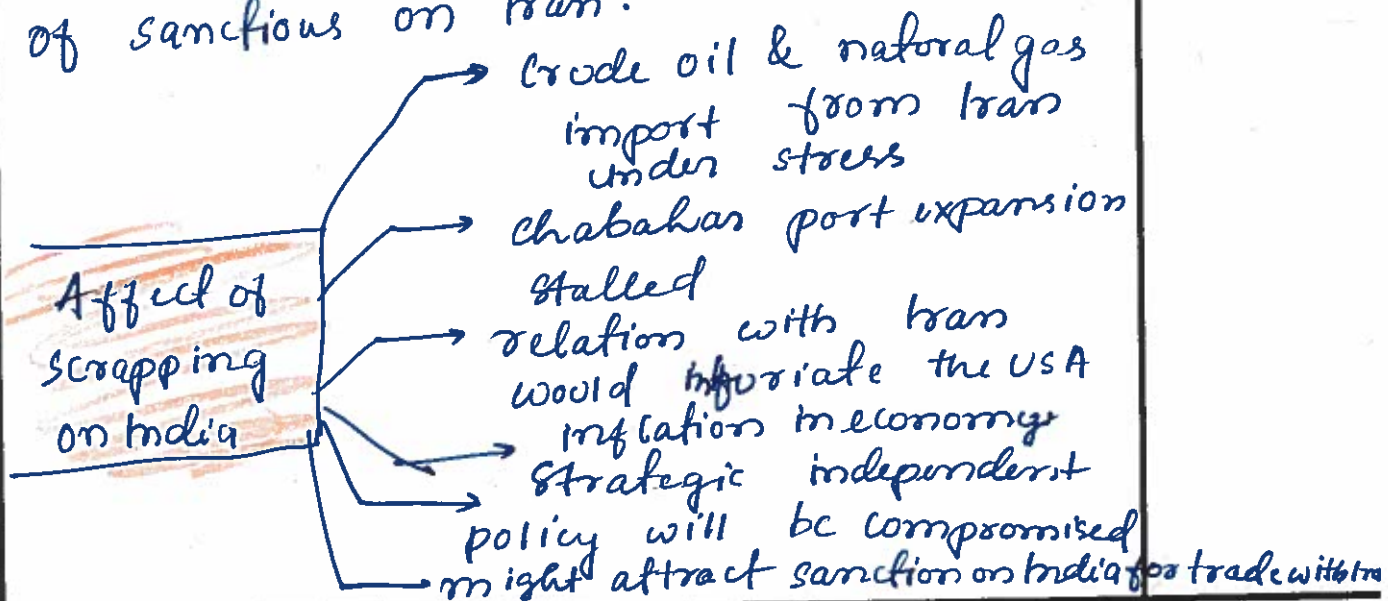 of sanctions on Iran.
Crude oil & natoral gas
import from Iran
under stress
Chabahar port expansion
stalled
relation with Iran
would infuriate the USA
inflation in economy
Strategic independent
policy will be compromised
might attract sanction on India for trade with Ira
Affect of
scrapping
on India